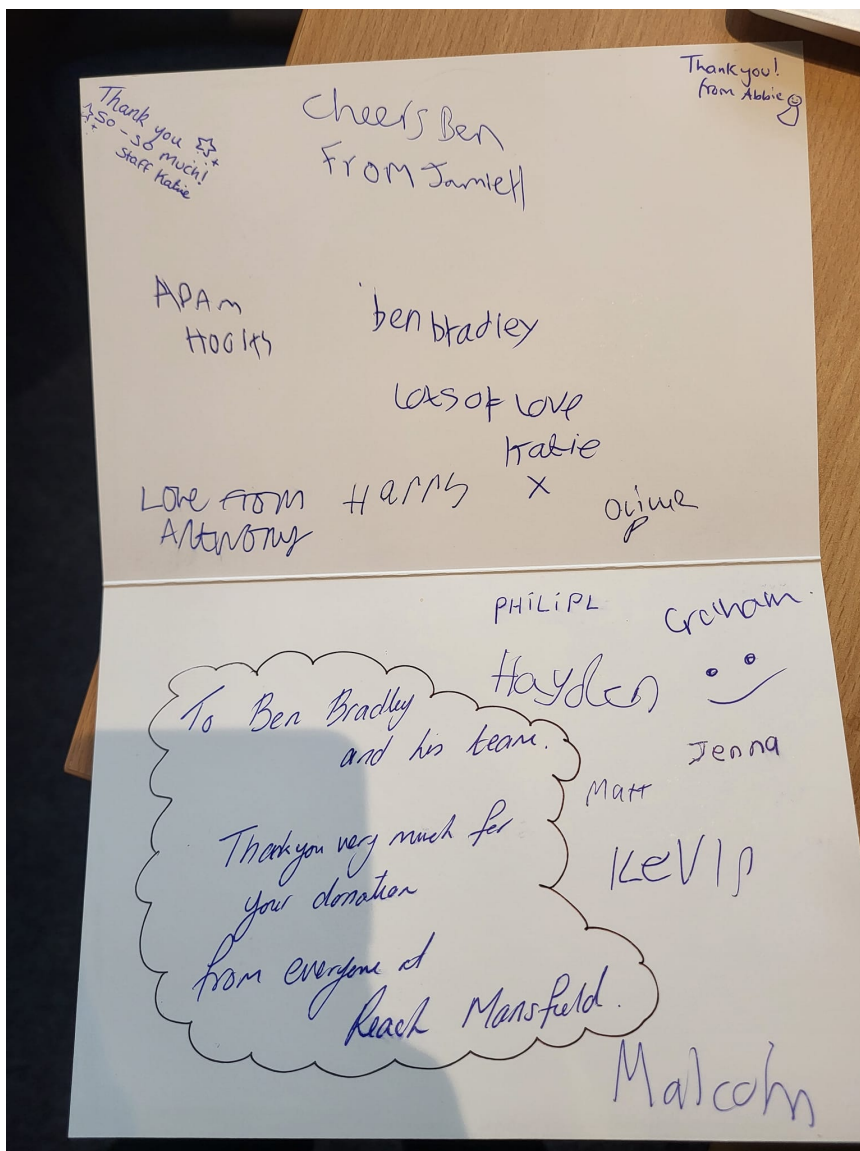 Thank you
so - so much!
Staff Katie
Cheers Ben
From Jamie H
Thank you!
from Abbie
ADAM
ben bradley
Lots of Love
Katie
x
Love From
Antwony
Harry
PHiLiPL
Graham.
Hayden
To Ben Bradley
and his team.
Jenna
Matt
Thankyou very much for
your donation
Kevin
from everyone at
Reach Mansfield.
Malcolm